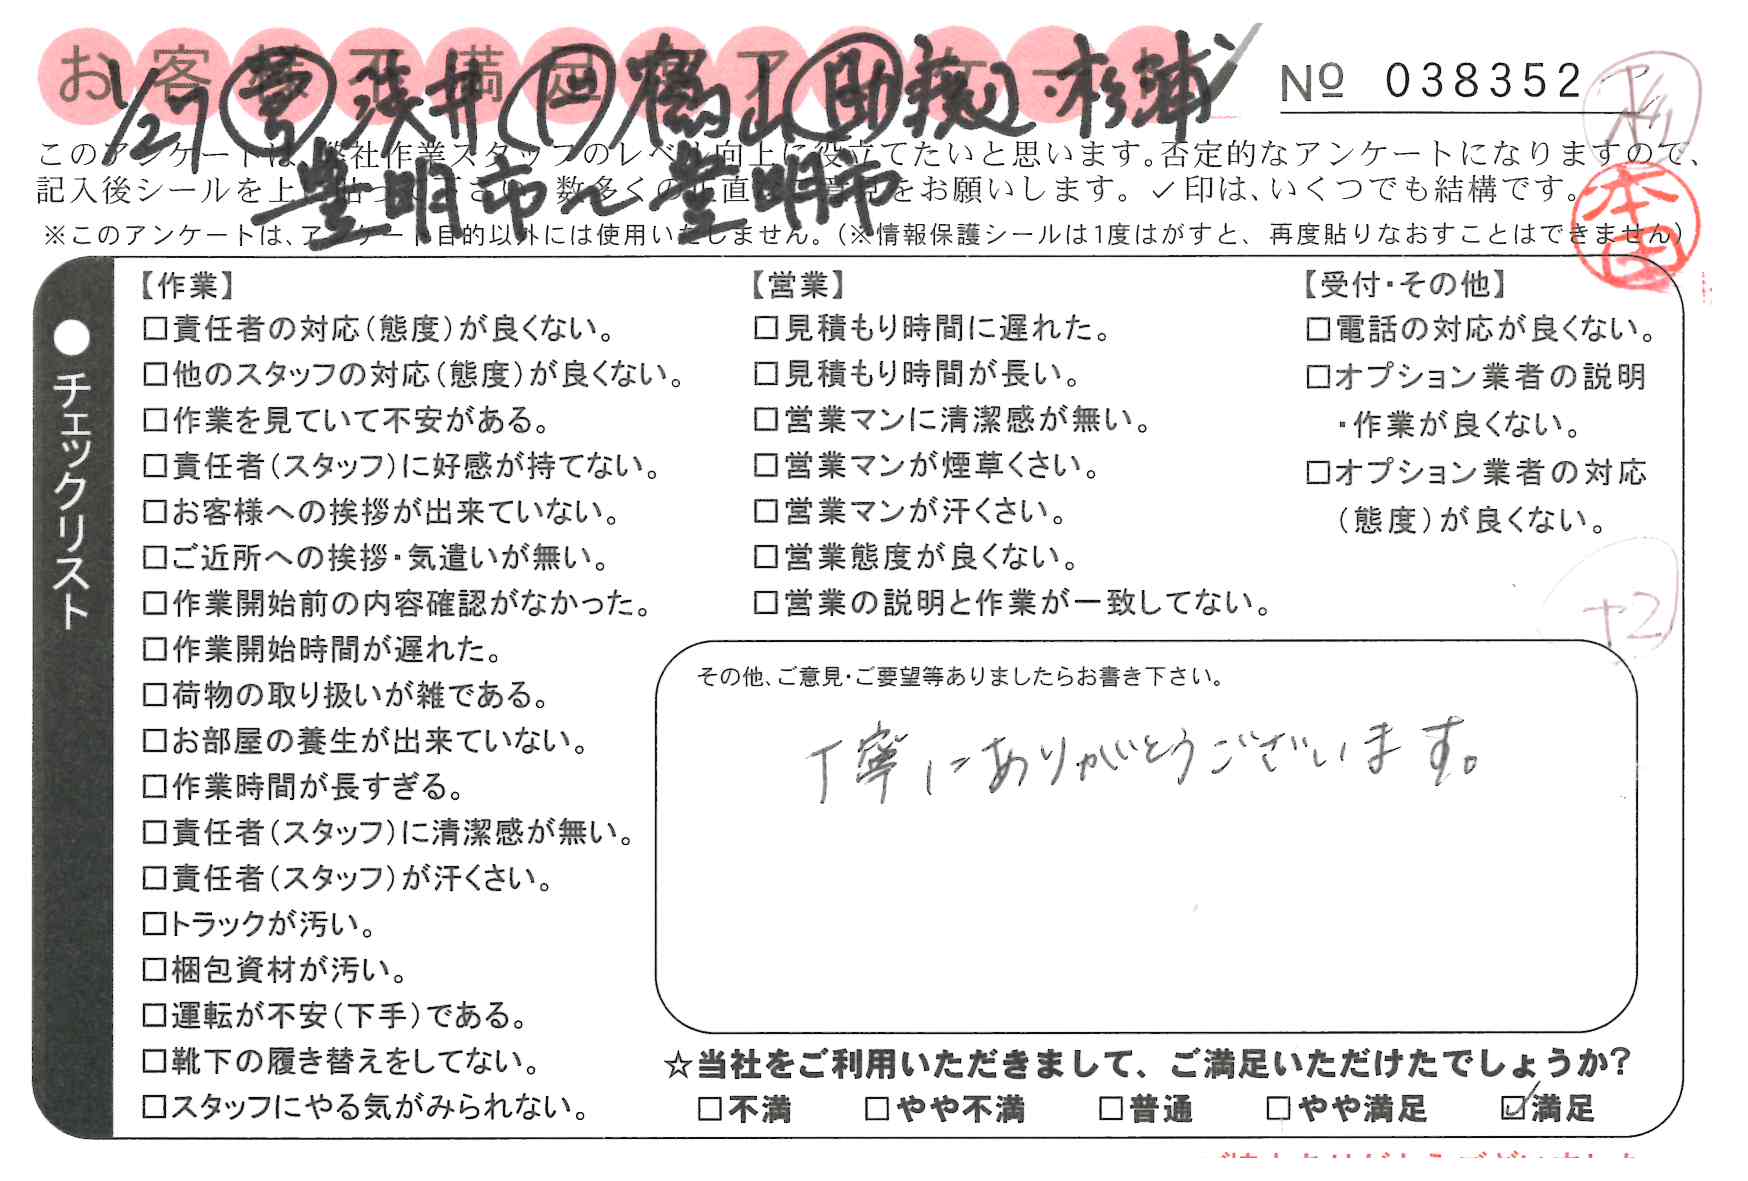 お客様不満足度アンケート
No 038352
1/27 営 浅井 口 橋山 助 渡辺・杉浦
豊明市〜豊明市
このアンケートは、弊社作業スタッフのレベル向上に役立てたいと思います。否定的なアンケートになりますので、
記入後シールを上に貼って下さい。数多くの正直なご意見をお願いします。✓印は、いくつでも結構です。
※このアンケートは、アンケート目的以外には使用いたしません。(※情報保護シールは1度はがすと、再度貼りなおすことはできません)
本田
●チェックリスト
【作業】
□責任者の対応(態度)が良くない。
□他のスタッフの対応(態度)が良くない。
□作業を見ていて不安がある。
□責任者(スタッフ)に好感が持てない。
□お客様への挨拶が出来ていない。
□ご近所への挨拶・気遣いが無い。
□作業開始前の内容確認がなかった。
□作業開始時間が遅れた。
□荷物の取り扱いが雑である。
□お部屋の養生が出来ていない。
□作業時間が長すぎる。
□責任者(スタッフ)に清潔感が無い。
□責任者(スタッフ)が汗くさい。
□トラックが汚い。
□梱包資材が汚い。
□運転が不安(下手)である。
□靴下の履き替えをしてない。
□スタッフにやる気がみられない。
【営業】
□見積もり時間に遅れた。
□見積もり時間が長い。
□営業マンに清潔感が無い。
□営業マンが煙草くさい。
□営業マンが汗くさい。
□営業態度が良くない。
□営業の説明と作業が一致してない。
【受付・その他】
□電話の対応が良くない。
□オプション業者の説明
・作業が良くない。
□オプション業者の対応
(態度)が良くない。
+2
その他、ご意見・ご要望等ありましたらお書き下さい。
丁寧にありがとうございます。
☆当社をご利用いただきまして、ご満足いただけたでしょうか?
□不満 □やや不満 □普通 □やや満足 ☑満足